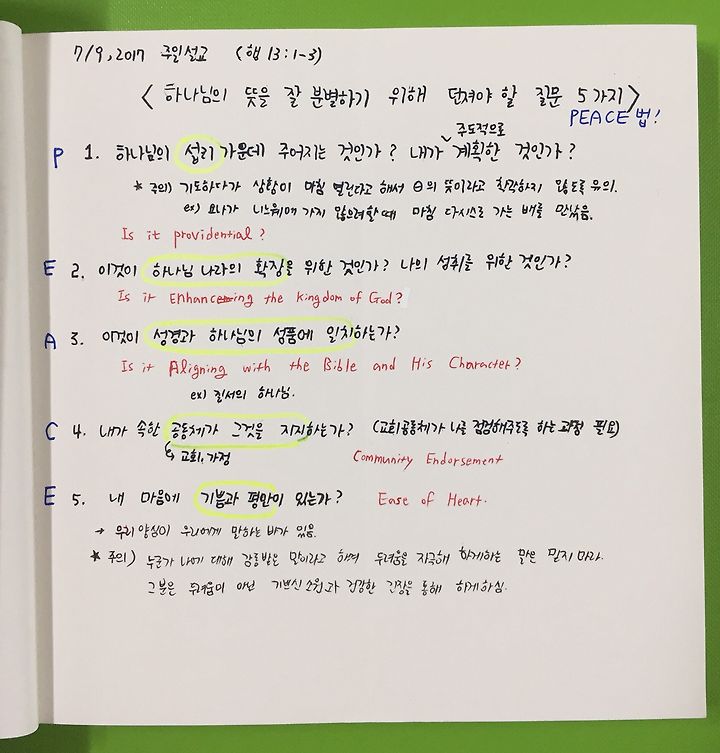 7/9, 2017 주일설교 (행 13:1-3)
< 하나님의 뜻을 잘 분별하기 위해 던져야 할 질문 5가지>
PEACE 법!
P 1. 하나님의 섭리 가운데 주어지는 것인가? 내가 주도적으로 계획한 것인가?
* 주의) 기도하다가 상황이 마침 열린다고 해서 θ의 뜻이라고 착각하지 않도록 유의.
ex) 요나가 니느웨에 가지 않으려할 때 마침 다시스로 가는 배를 만났음.
Is it providential?
E 2. 이것이 하나님 나라의 확장을 위한 것인가? 나의 성취를 위한 것인가?
Is it Enhancing the kingdom of God?
A 3. 이것이 성경과 하나님의 성품에 일치하는가?
Is it Aligning with the Bible and His Character?
ex) 질서의 하나님.
C 4. 내가 속한 공동체가 그것을 지지하는가? (교회공동체가 나를 점검해주도록 하는 과정 필요)
↳ 교회, 가정 Community Endorsement
E 5. 내 마음에 기쁨과 평안이 있는가? Ease of Heart.
→ 우리 양심이 우리에게 말하는 바가 있음.
* 주의) 누군가 나에 대해 감동받은 말이라고 하며 두려움을 자극해 하게하는 말은 믿지 마라.
그분은 두려움이 아닌 기쁘신 소원과 건강한 긴장을 통해 하게 하심.